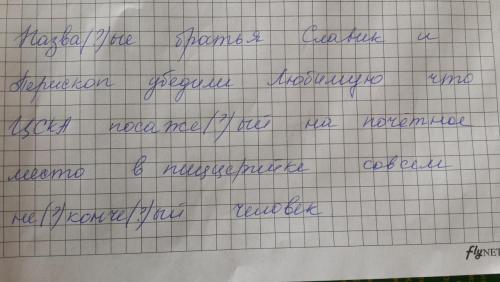 Назва(?)ые братья Славик и
Перископ убедили Любимую что
ЦСКА посаже(?)ый на почетное
место в пиццерийке совсем
не(?)конче(?)ый человек
flyNET